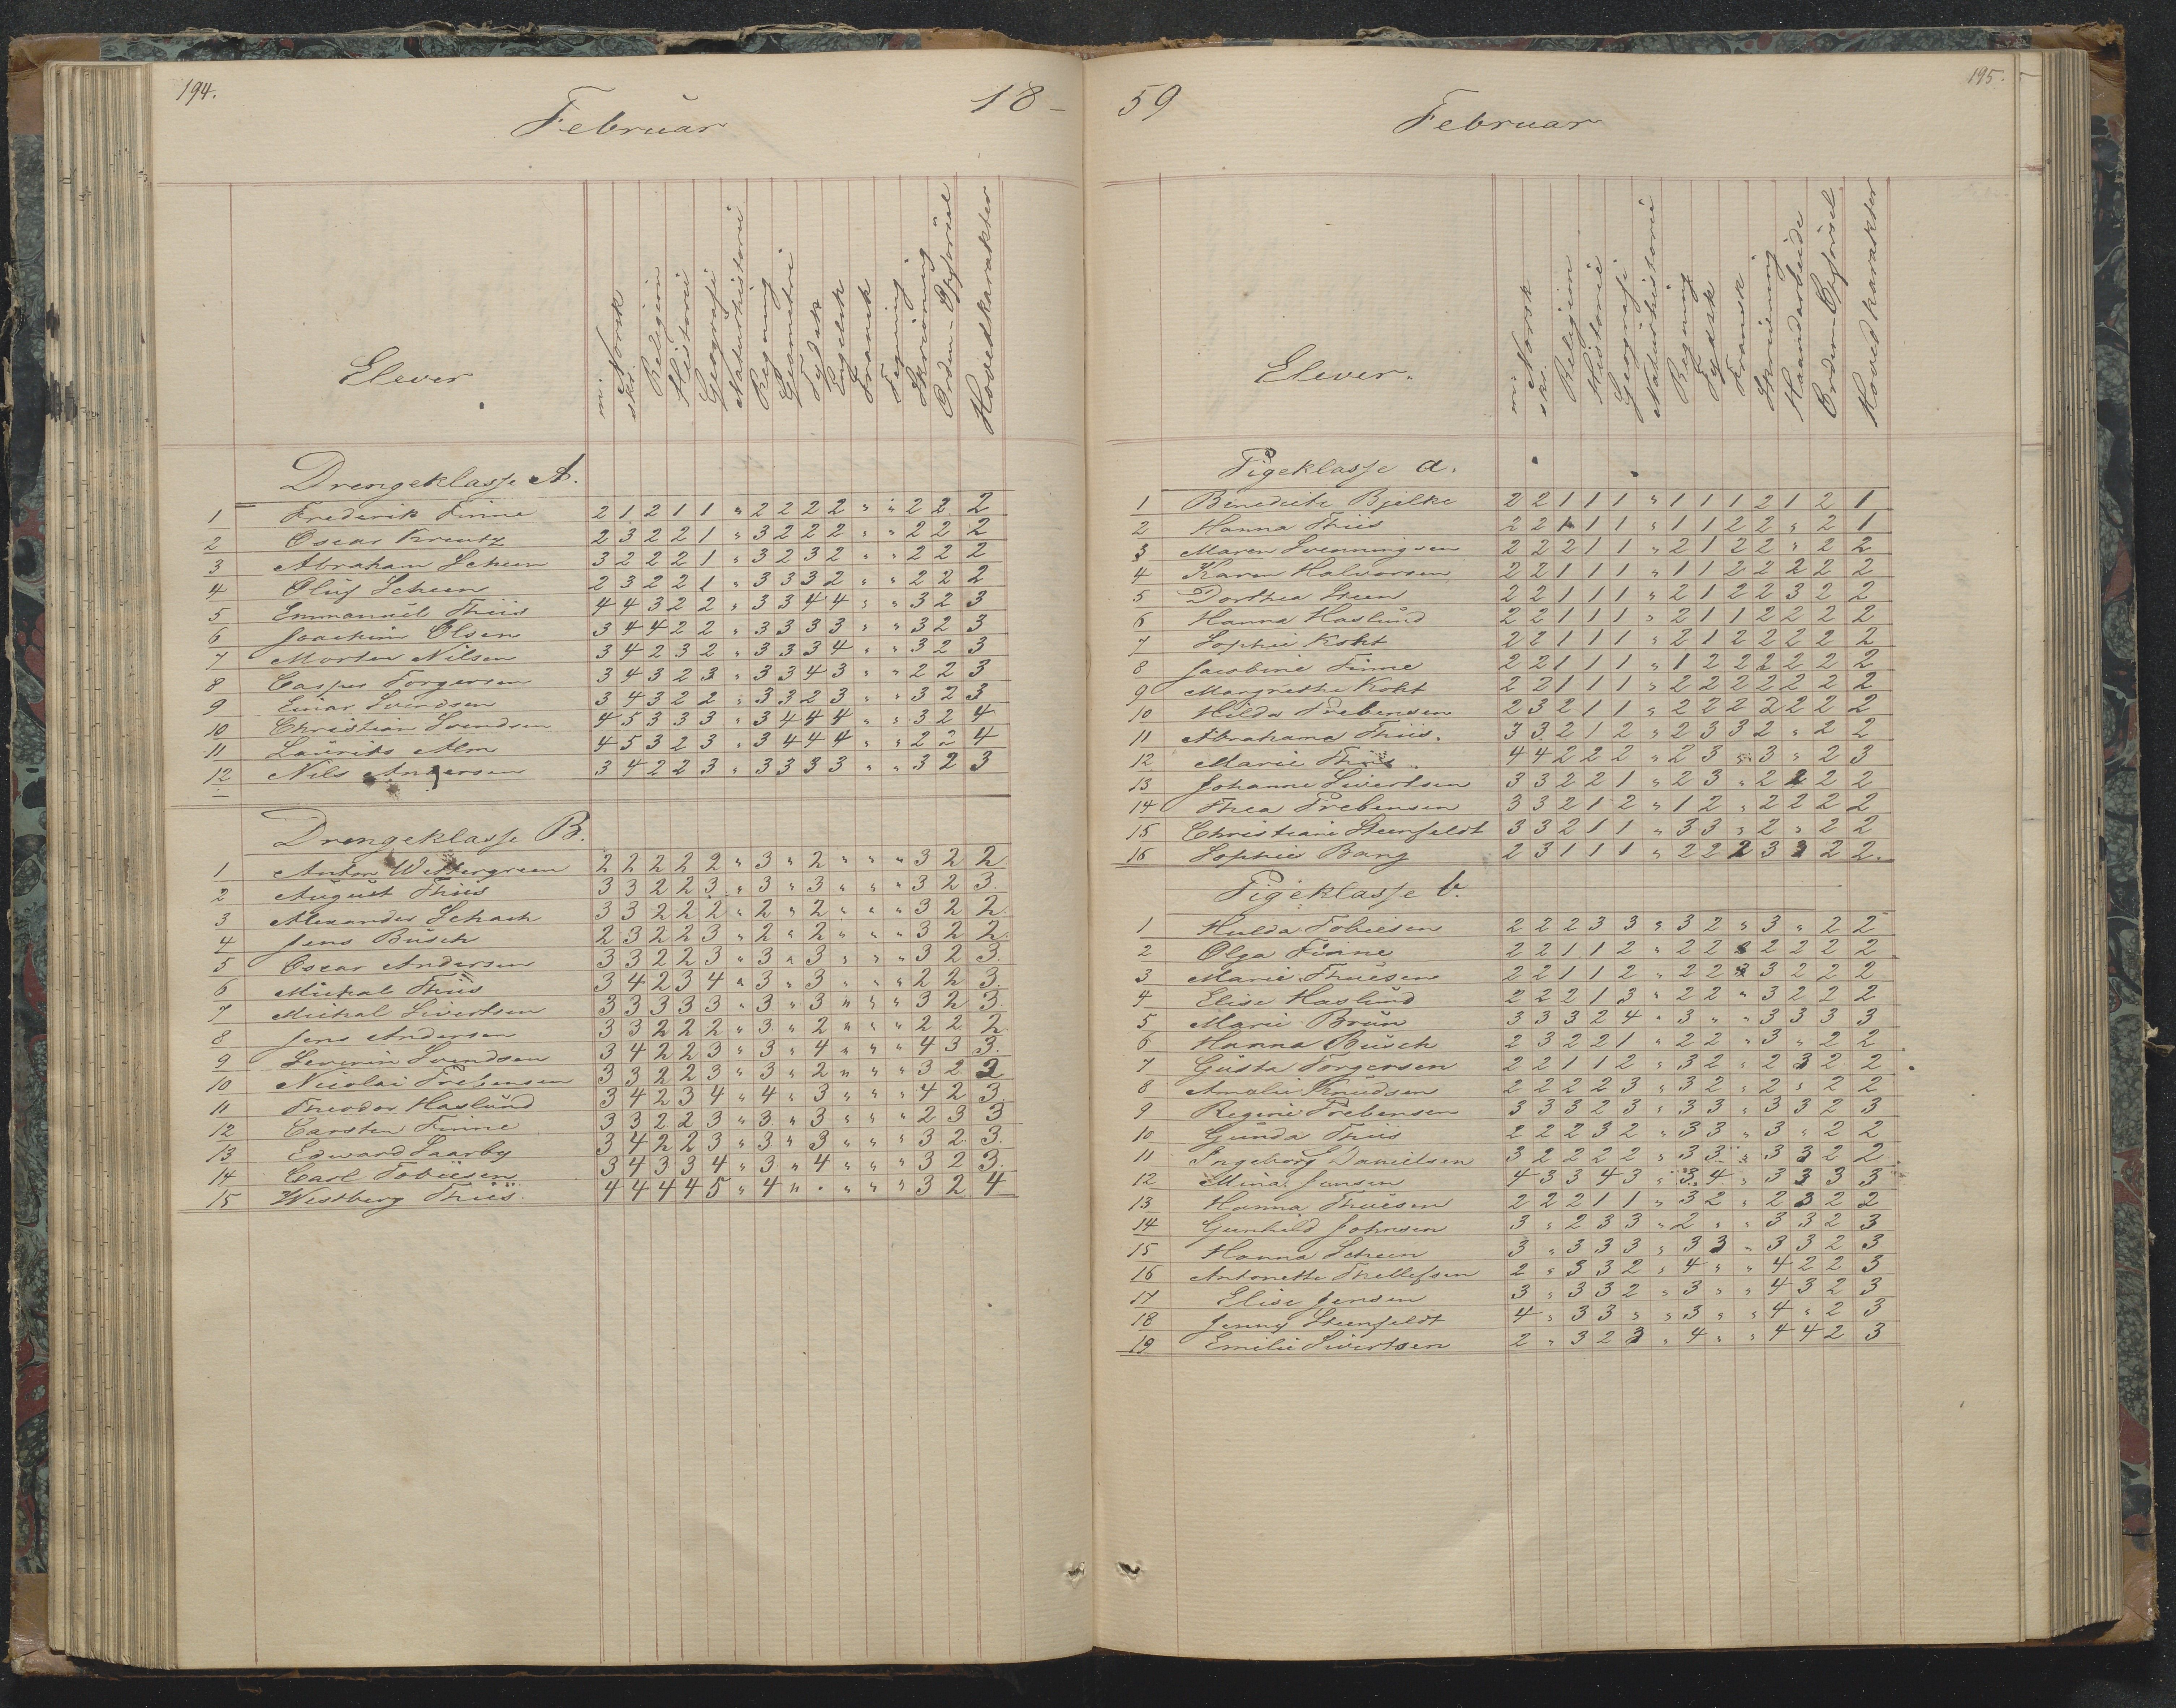 194.
Februar
18-
Elever
m: Norsk
skr.
Religion
Historie
Geografi
Naturhistorie
Regning
Geometri
Tydsk
Engelsk
Fransk
Tegning
Skrivning
Orden – Opførsel
Hovedkarakter
Drengeklasse A.
1 Frederik Finne 2 1 2 1 1 " 2 2 2 2 " " 2 2 2
2 Oscar Kreutz 2 3 2 2 1 " 3 2 2 2 " " 2 2 2
3 Abraham Scheen 3 2 2 2 1 " 3 2 3 2 " " 2 2 2
4 Oluf Scheen 2 3 2 2 1 " 3 3 3 2 " " 2 2 2
5 Emmanuel Thiis 4 4 3 2 2 " 3 3 4 4 " " 3 2 3
6 Joachim Olsen 3 4 4 2 2 " 3 3 3 3 " " 3 2 3
7 Morten Nilsen 3 4 2 3 2 " 3 3 3 4 " " 3 2 3
8 Casper Torgersen 3 4 3 2 3 " 3 3 4 3 " " 2 2 3
9 Einar Svendsen 3 4 3 2 2 " 3 3 2 3 " " 3 2 3
10 Christian Svendsen 4 5 3 3 3 " 3 4 4 4 " " 3 2 4
11 Laurits Alm 4 5 3 2 3 " 3 4 4 4 " " 2 2 4
12 Nils Andersen 3 4 2 2 3 " 3 3 3 3 " " 3 2 3
Drengeklasse B.
1 Anton Wettergreen 2 2 2 2 2 " 3 " 2 " " " 3 2 2
2 August Thiis 3 3 2 2 3 " 3 " 3 " " " 3 2 3.
3 Alexander Schach 3 3 2 2 2 " 2 " 2 " " " 3 2 2
4 Jens Busch 2 3 2 2 3 " 2 " 2 " " " 3 2 2.
5 Oscar Andersen 3 3 2 2 3 " 3 " 3 " " " 3 2 3.
6 Michal Thiis 3 4 2 3 4 " 3 " 3 " " " 2 2 3.
7 Michal Sivertsen 3 3 3 3 3 " 3 " 3 " " " 3 2 3.
8 Jens Andersen 3 3 2 2 2 " 3 " 2 " " " 2 2 2
9 Severin Svendsen 3 4 2 2 3 " 3 " 4 " " " 4 3 3.
10 Nicolai Prebensen 3 3 2 2 3 " 3 " 2 " " " 3 2 2
11 Theodor Haslund 3 4 2 3 4 " 4 " 3 " " " 4 2 3.
12 Carsten Finne 3 3 2 2 3 " 3 " 3 " " " 2 3 3
13 Edward Saarby 3 4 2 2 3 " 3 " 3 " " " 3 2 3.
14 Carl Tobiesen 3 4 3 3 4 " 3 " 4 " " " 3 2 3.
15 Westberg Thiis. 4 4 4 4 5 " 4 " . " " " 3 2 4
59
Februar
195.
Elever.
m: Norsk
skr.
Religion
Historie
Geografi
Naturhistorie
Regning
Tydsk
Fransk
Skrivning
Haandarbeide
Orden – Opførsel
Hovedkarakter
Pigeklasse a.
1 Benedicte Bjelke 2 2 1 1 1 " 1 1 1 2 1 2 1
2 Hanna Thiis 2 2 1 1 1 " 1 1 2 2 " 2 1
3 Maren Svenningsen 2 2 2 1 1 " 2 1 2 2 " 2 2
4 Karen Halvorsen 2 2 1 1 1 " 1 1 2 2 2 2 2
5 Dorthea Steen 2 2 1 1 1 " 2 1 2 2 3 2 2
6 Hanna Haslund 2 2 1 1 1 " 2 1 1 2 2 2 2
7 Sophie Koht 2 2 1 1 1 " 2 1 2 2 2 2 2
8 Jacobine Finne 2 2 1 1 1 " 1 2 2 2 2 2 2
9 Margrethe Koht 2 2 1 1 1 " 2 2 2 2 2 2 2
10 Hilda Prebensen 2 3 2 1 1 " 2 2 2 2 2 2 2
11 Abrahame Thiis. 3 3 2 1 2 " 2 3 3 2 " 2 2
12 Marie Thiis 4 4 2 2 2 " 2 3 " 3 " 2 3
13 Johanne Sivertsen 3 3 2 2 1 " 2 3 " 2 2 2 2
14 Thea Prebensen 3 3 2 1 2 " 1 2 " 2 2 2 2
15 Christiane Steenfeldt 3 3 2 1 1 " 3 3 " 2 " 2 2
16 Sophie Bang 2 3 1 1 1 " 2 2 2 3 3 2 2.
Pigeklasse b.
1 Hulda Tobiesen 2 2 2 3 3 " 3 2 " 3 " 2 2
2 Olga Finne 2 2 1 1 2 " 2 2 " 2 2 2 2
3 Marie Thuesen 2 2 1 1 2 " 2 2 " 3 2 2 2
4 Elise Haslund 2 2 2 1 3 " 2 2 " 3 2 2 2
5 Marie Brun 3 3 3 2 4 " 3 " " 3 3 3 3
6 Hanna Busch 2 3 2 2 1 " 2 2 " 3 " 2 2
7 Gusta Torgersen 2 2 1 1 2 " 3 2 " 2 3 2 2
8 Amalie Knudsen 2 2 2 2 3 " 3 2 " 2 " 2 2
9 Regine Prebensen 3 3 3 2 3 " 3 3 " 3 3 2 3
10 Gunda Thiis 2 2 2 3 2 " 3 3 " 3 " 2 2
11 Ingeborg Danielsen 3 2 2 2 2 " 3 3 " 3 3 2 2
12 Mina Jansen 4 3 3 4 3 " 3 4 " 3 3 3 3
13 Hanna Thuesen 2 2 2 1 1 " 3 2 " 2 3 2 2
14 Gunhild Johnsen 3 " 2 3 3 " 2 " " 3 3 2 3
15 Hanna Scheen 3 " 3 3 3 " 3 3 " 3 3 2 3
16 Antonette Thellefsen 2 " 3 3 2 " 4 " " 4 2 2 3
17 Elise Jensen 3 " 3 3 2 " 3 " " 4 3 2 3
18 Jenny Steenfeldt 4 " 3 3 " " 3 " " 4 " 2 3
19 Emilie Sivertsen 2 " 3 2 3 " 4 " " 4 4 2 3